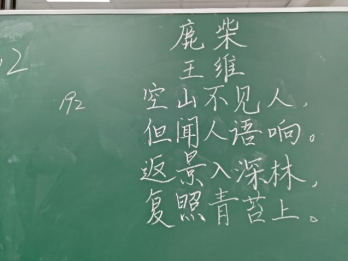 鹿柴
王维
空山不见人，
但闻人语响。
返景入深林，
复照青苔上。
192